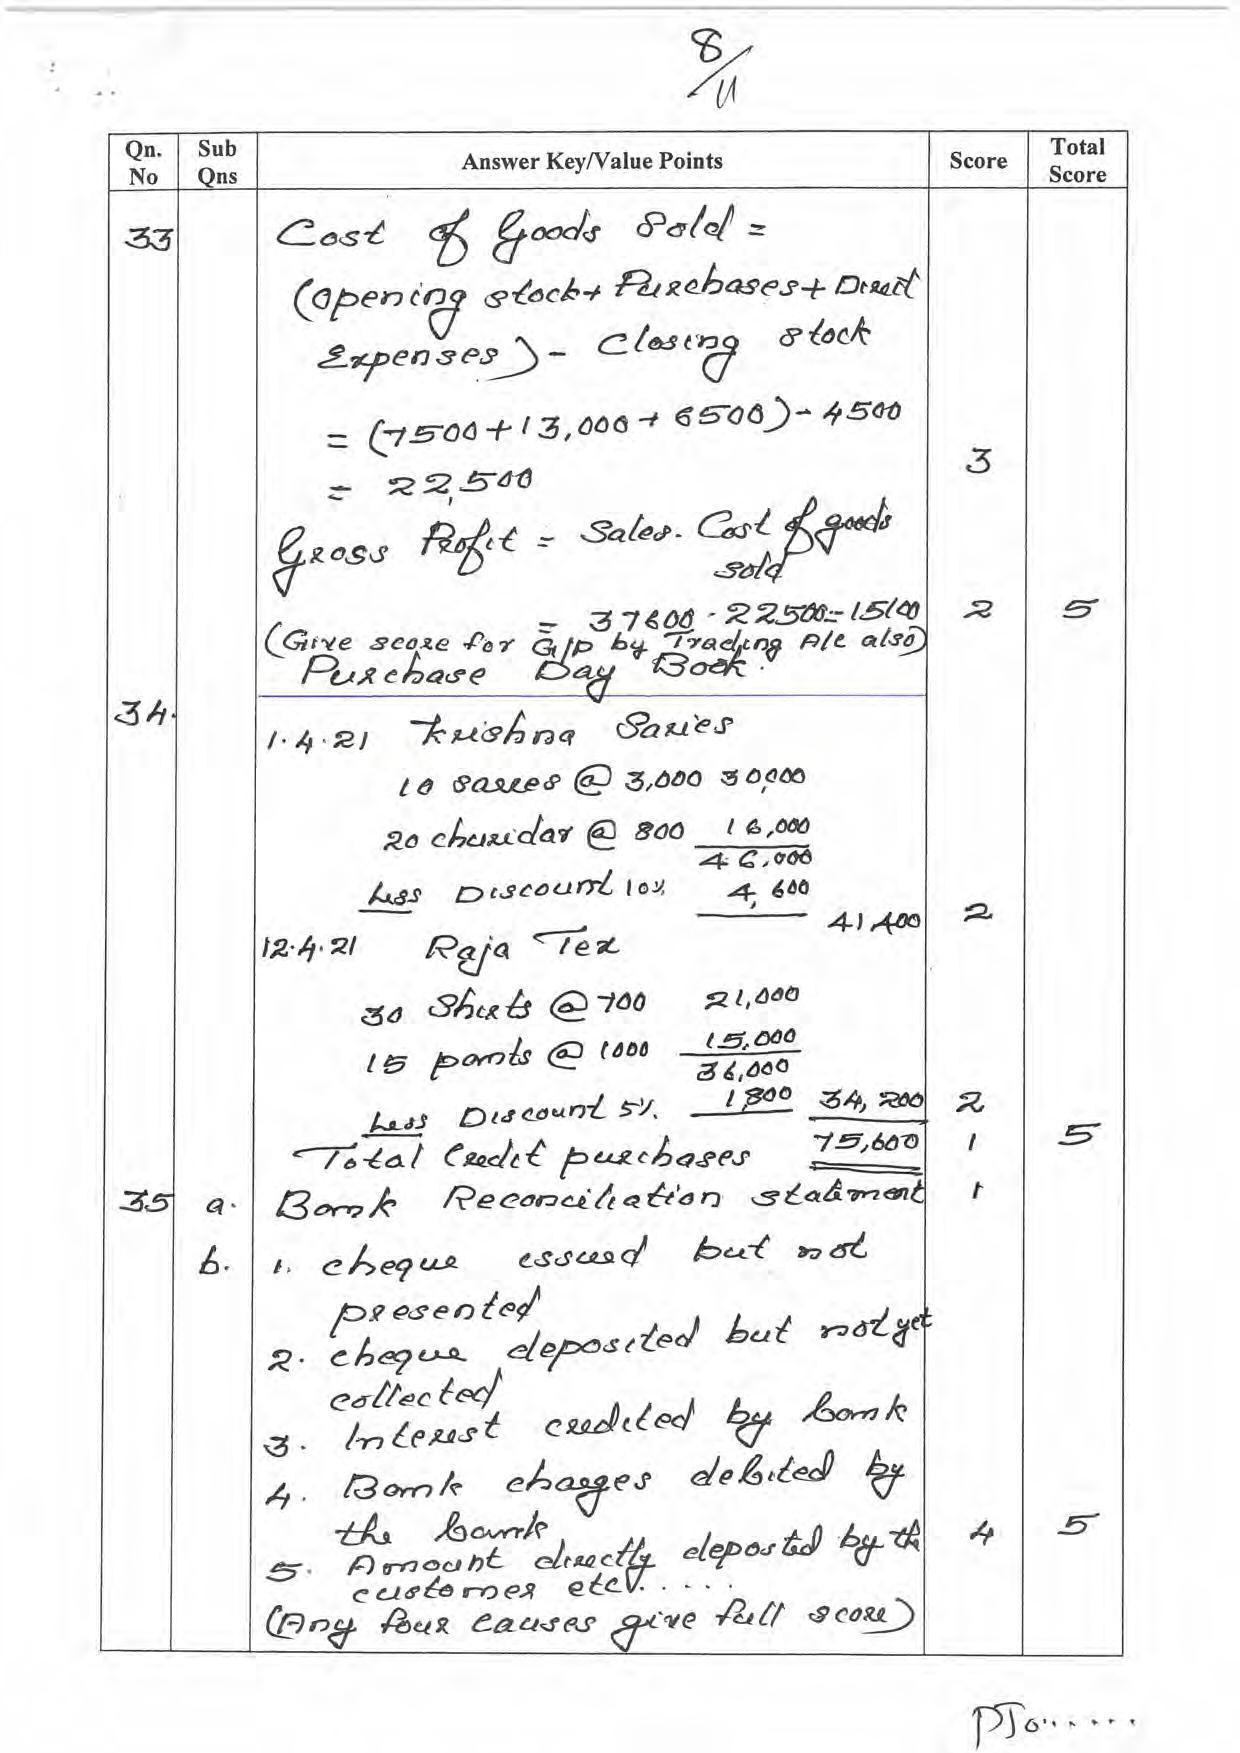 8/11
Qn. No Sub Qns Answer Key/Value Points Score Total Score
33 Cost of Goods Sold =
(opening stock + Purchases + Direct
Expenses) - Closing stock
= (7500+13,000+6500)-4500
= 22,500 3
Gross Profit = Sales - Cost of goods
sold
= 37600 - 22500 = 15100 2 5
(Give score for G/P by Trading A/c also)
34. Purchase Day Book.
1.4.21 Krishna Saries
10 sarees @ 3,000 30,000
20 churidar @ 800 16,000
46,000
Less Discount 10% 4,600
41,400 2
12.4.21 Raja Tex
30 Shirts @ 700 21,000
15 pants @ 1000 15,000
36,000
Less Discount 5%. 1,800 34,200 2
Total Credit purchases 75,600 1 5
35 a. Bank Reconciliation statement 1
b. 1. cheque issued but not
presented
2. cheque deposited but not yet
collected
3. Interest credited by bank
4. Bank charges debited by
the bank
5. Amount directly deposited by the
customer etc.....
4 5
(Any four causes give full score)
PTo......